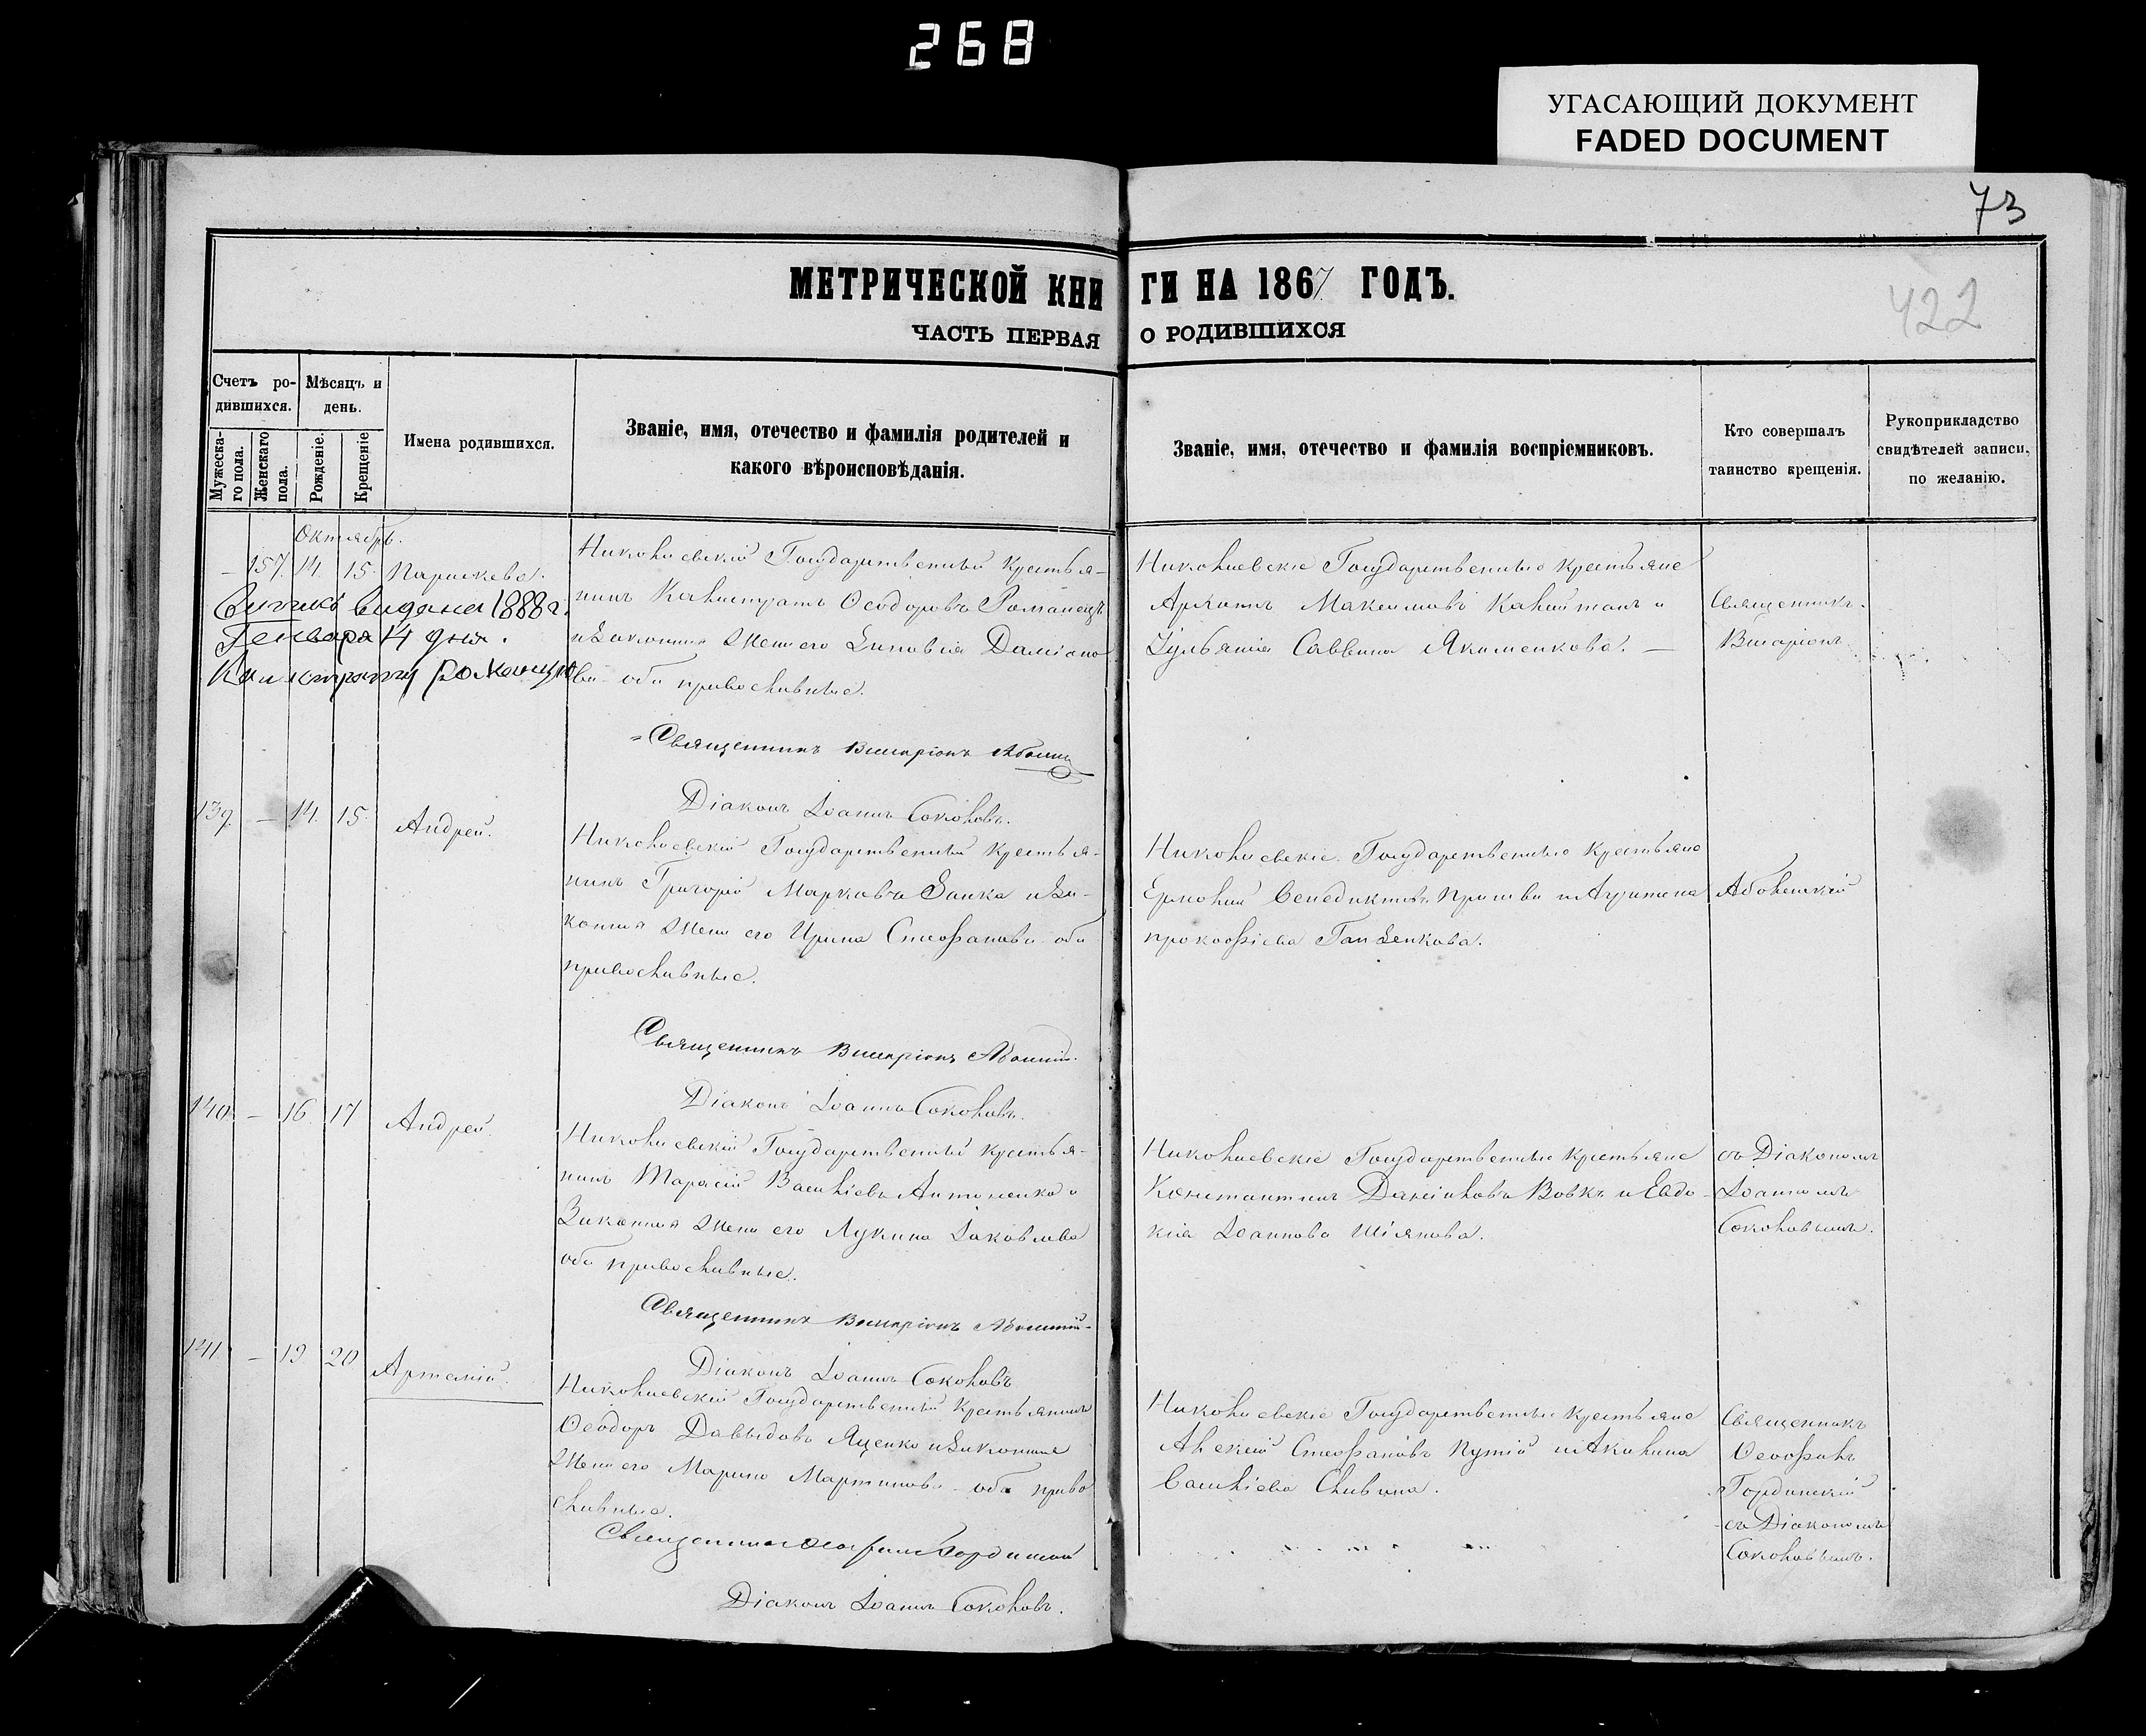 268
УГАСАЮЩИЙ ДОКУМЕНТ
FADED DOCUMENT
73
422
МЕТРИЧЕСКОЙ КНИГИ НА 1867 ГОДЪ.
ЧАСТЬ ПЕРВАЯ О РОДИВШИХСЯ
Счетъ ро-
дившихся.
Мѣсяцъ и
день.
Мужеска-
го пола.
Женскаго
пола.
Рожденіе.
Крещеніе
Имена родившихся.
Званіе, имя, отечество и фамилія родителей и
какого вѣроисповѣданія.
Званіе, имя, отечество и фамилія воспріемниковъ.
Кто совершалъ
таинство крещенія.
Рукоприкладство
свидѣтелей записи,
по желанію.
Октябрь.
— 157. 14. 15. Параскева.
видана 1888 г.
Генваря 14 дня.
Калистрату Романцу
Николаевскій Государственный крестья-
нинъ Калистратъ Ѳеодоровъ Романецъ
и Законная Жена его Зиновія Даміано
ва оба православные.
Священникъ Виссаріонъ
Діаконъ Іоаннъ Соколовъ.
Николаевскіе Государственные крестьяне
Максимовъ Капитанъ и
Саввина Якименкова. —
Священникъ
Висаріонъ
139. — 14. 15. Андрей.
Николаевскій Государственный крестья-
нинъ Григорій Марковъ Заика и За-
конная Жена его Ирина Стефанова оба
православные.
Священникъ Виссаріонъ
Діаконъ Іоаннъ Соколовъ.
Николаевскіе Государственные крестьяне
Ермолай Венедиктовъ
прокофіева
140. — 16. 17 Андрей.
Николаевскій Государственный крестья-
нинъ Тарасій Васильевъ Антоненко и
Законная Жена его Лукина Іаковлева
оба православные.
Священникъ Виссаріонъ
Діаконъ Іоаннъ Соколовъ
Николаевскіе Государственные крестьяне
Константинъ Даніиловъ Вовкъ и Евдо
кія Іоаннова Шіянова.
съ Діакономъ
Іоанномъ
Соколовымъ.
141. — 19 20 Артемій.
Николаевскій Государственный крестьянинъ
Ѳеодоръ Давыдовъ Яценко и Законная
Жена его Марина Мартинова оба право
славные.
Священникъ
Діаконъ Іоаннъ Соколовъ.
Николаевскіе Государственные крестьяне
Алексій Стефановъ Путій и Акилина
Васильева
Священникъ
Ѳеофилъ
Гординскій
съ Діакономъ
Соколовымъ.